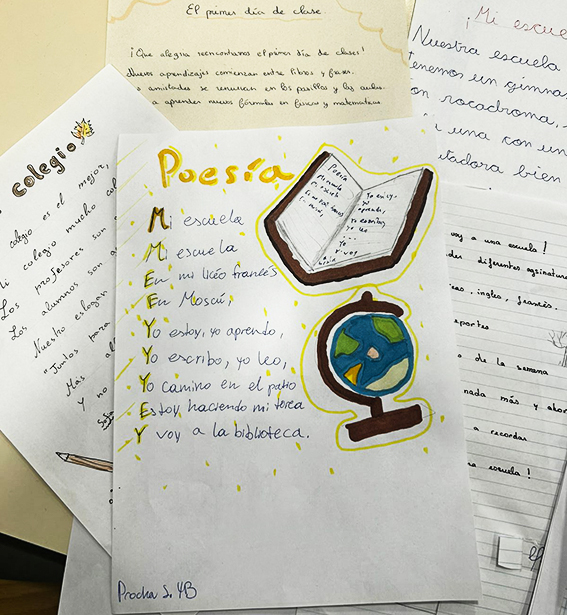 El primer día de clase.
¡Que alegria reencontrarnos el primer día de clases!
Nuevos aprendizajes comienzan entre libros y frases.
amistades se renuevan en los pasillos y las aulas.
a aprender nuevas fórmulas en fisicas y matematicas.
¡Mi escue
Nuestra escuela
tenemos un gimna
on rocodromo,
una con un
tadora bien
colegio
colegio es el mejor,
colegio mucho
Los profesores son
Los alumnos son
Nuestro eslogan
"Juntos para
Mas
Y no
Poesía
Mi escuela
Mi escuela
En mi liceo francés
En Moscú,
Yo estoy, yo aprendo,
Yo escribo, yo leo,
Yo camino en el patio
Estoy haciendo mi terea
Y voy a la biblioteca.
Poesía
Mi escuela
Mi escuela
Yo estoy,
yo
aprendo,
Yo escribo,
yo leo
Yo
Y voy
voy a una escuela!
der diferentes asignatura
ingles, francés.
eportes
de la semana
nada más y ahor
a recordar
escuela!
Procha S. 4B